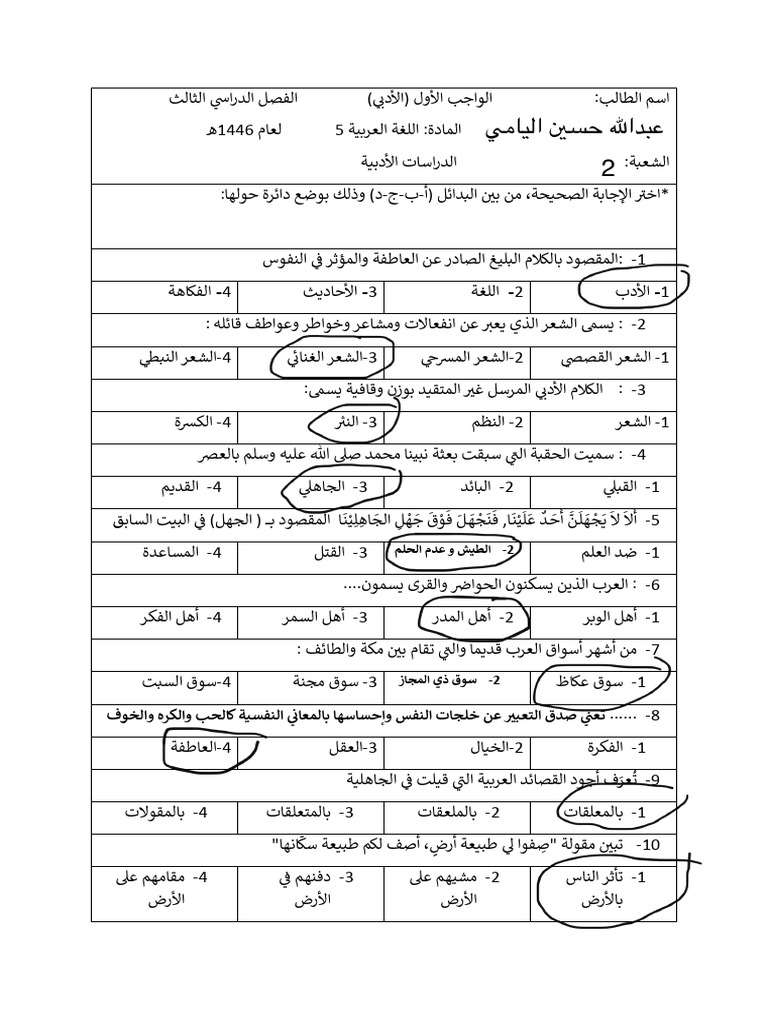 اسم الطالب: الواجب الأول (الأدبي) الفصل الدراسي الثالث
عبدالله حسين اليامي المادة: اللغة العربية 5 لعام 1446هـ
الشعبة: 2 الدراسات الأدبية
*اختر الإجابة الصحيحة، من بين البدائل (أ-ب-ج-د) وذلك بوضع دائرة حولها:
1- :المقصود بالكلام البليغ الصادر عن العاطفة والمؤثر في النفوس
1- الأدب 2- اللغة 3- الأحاديث 4- الفكاهة
2- : يسمى الشعر الذي يعبر عن انفعالات ومشاعر وخواطر وعواطف قائله :
1- الشعر القصصي 2-الشعر المسرحي 3-الشعر الغنائي 4-الشعر النبطي
3- : الكلام الأدبي المرسل غير المتقيد بوزن وقافية يسمى:
1- الشعر 2- النظم 3- النثر 4- الكسرة
4- : سميت الحقبة التي سبقت بعثة نبينا محمد صلى الله عليه وسلم بالعصر
1- القبلي 2- البائد 3- الجاهلي 4- القديم
5- أَلاَ لاَ يَجْهَلَنَّ أَحَدٌ عَلَيْنَا, فَنَجْهَلَ فَوْقَ جَهْلِ الجَاهِلِيْنَا المقصود بـ ( الجهل) في البيت السابق
1- ضد العلم 2- الطيش و عدم الحلم 3- القتل 4- المساعدة
6- : العرب الذين يسكنون الحواضر والقرى يسمون....
1- أهل الوبر 2- أهل المدر 3- أهل السمر 4- أهل الفكر
7- من أشهر أسواق العرب قديما والتي تقام بين مكة والطائف :
1- سوق عكاظ 2- سوق ذي المجاز 3- سوق مجنة 4-سوق السبت
8- ...... تعني صدق التعبير عن خلجات النفس وإحساسها بالمعاني النفسية كالحب والكره والخوف
1- الفكرة 2-الخيال 3-العقل 4-العاطفة
9- تُعرَف أجود القصائد العربية التي قيلت في الجاهلية
1- بالمعلقات 2- بالملعقات 3- بالمتعلقات 4- بالمقولات
10- تبين مقولة "صِفوا لي طبيعة أرضٍ، أصِف لكم طبيعة سكّانها"
1- تأثر الناس بالأرض 2- مشيهم على الأرض 3- دفنهم في الأرض 4- مقامهم على الأرض